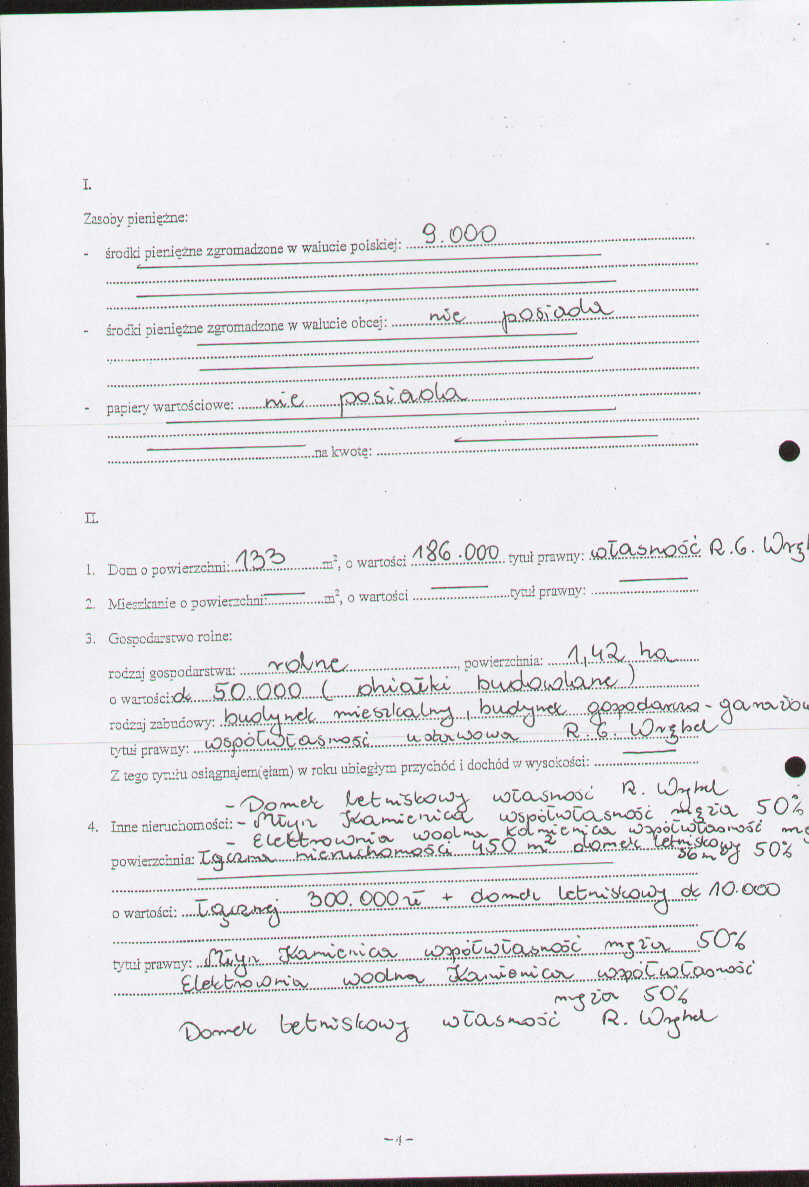 I.
Zasoby pieniężne:
- środki pieniężne zgromadzone w walucie polskiej: 9.000
- środki pieniężne zgromadzone w walucie obcej: nie posiada
- papiery wartościowe: nie posiada
na kwotę:
II.
1. Dom o powierzchni: 133 m², o wartości 186.000 tytuł prawny: własność R.G.
2. Mieszkanie o powierzchni: m², o wartości tytuł prawny:
3. Gospodarstwo rolne:
rodzaj gospodarstwa: rolne, powierzchnia: 1,42 ha
o wartości: ok 50.000 ( działki budowlane )
rodzaj zabudowy: budynek mieszkalny, budynek gospodarczo-garażow
tytuł prawny: współwłasność ustawowa R.G. Wrzbel
Z tego tytułu osiągnąłem(ęłam) w roku ubiegłym przychód i dochód w wysokości:
- Domek letniskowy własność R. Wrzbel
4. Inne nieruchomości: - Młyn Kamienica współwłasność męża 50%
- Elektrownia wodna Kamienica współwłasność mę
powierzchnia: Łączna nieruchomości 450 m² domek letniskowy 50%
36 m
o wartości: Łącznej 300.000 zł + domek letniskowy ok 10.000
tytuł prawny: Młyn Kamienica współwłasność męża 50%
Elektrownia wodna Kamienica współwłasność
męża 50%
Domek letniskowy własność R. Wrzbel
- 4 -